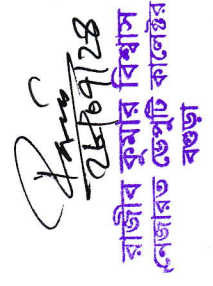 26/09/28
রাজীব কুমার বিশ্বাস
নেজারত ডেপুটি কালেক্টর
বগুড়া